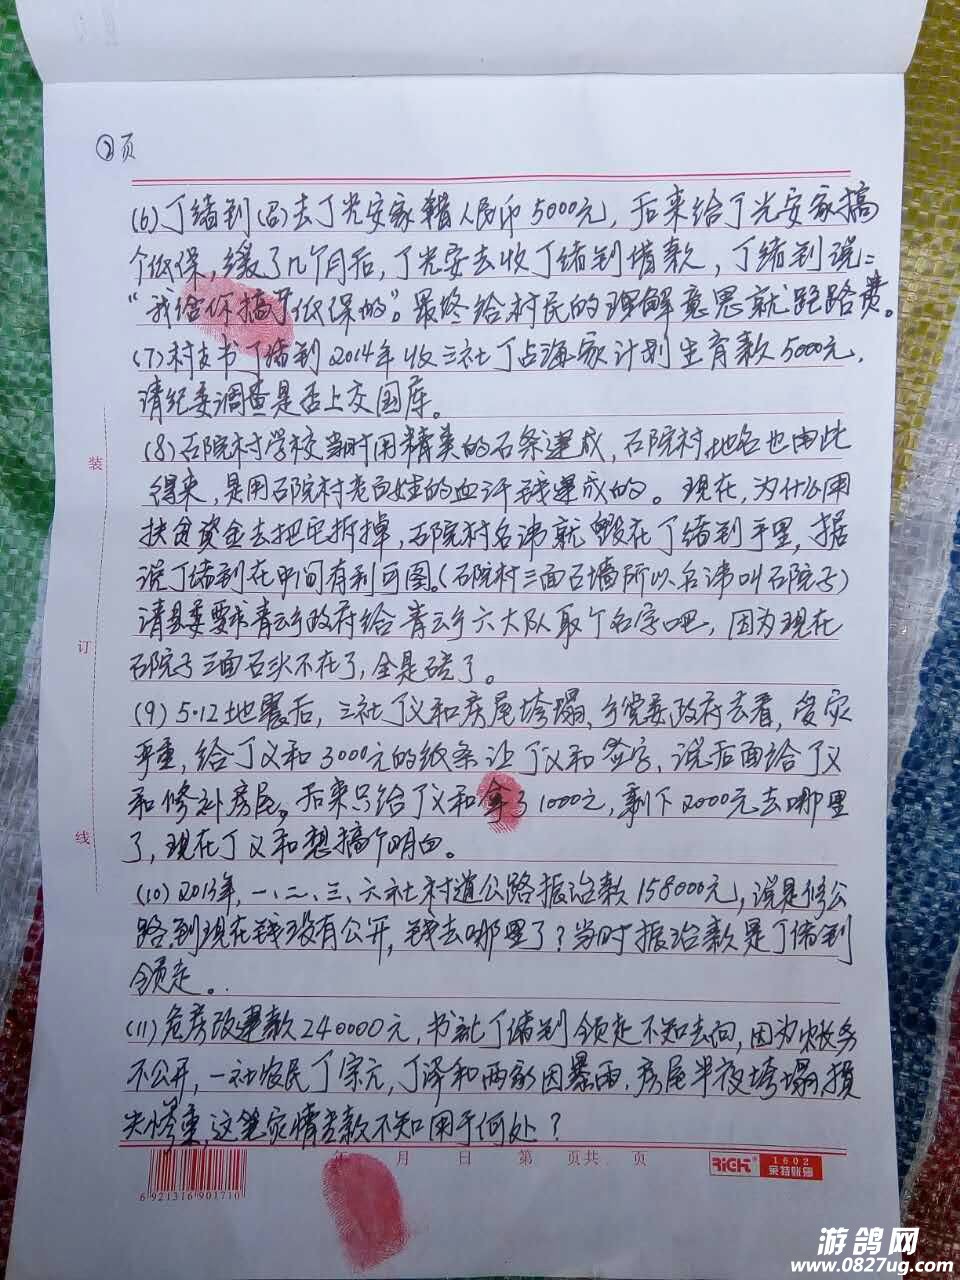 ②页
(6)丁绪钊(四)去丁光安家借人民币5000元,后来给丁光安家搞
个低保,缓了几个月后,丁光安去收丁绪钊借款,丁绪钊说:
“我给你搞了低保的”。最终给村民的理解意思就跑路费。
(7)村支书丁绪钊2014年收三社丁占海家计划生育款5000元,
请纪委调查是否上交国库。
(8)石院村学校当时用精美的石条建成,石院村地名也由此
得来,是用石院村老百姓的血汗钱建成的。现在,为什么用
扶贫资金去把它拆掉,石院村名讳就毁在丁绪钊手里,据
说丁绪钊在中间有利可图。(石院村三面石墙所以名讳叫石院子)
请县委要求青云乡政府给青云乡六大队取个名字吧,因为现在
石院子三面石头不在了,全是砖了。
(9)5·12地震后,三社丁义和房屋垮塌,乡党委政府去看,受灾
严重,给丁义和3000元的纸条让丁义和签字,说后面给丁义
和修补房屋。后来只给丁义和拿了1000元,剩下2000元去哪里
了,现在丁义和想搞个明白。
(10)2013年,一、二、三、六社村道公路振治款158000元,说是修公
路,到现在钱没有公开,钱去哪里了?当时振治款是丁绪钊
领走。
(11)危房改建款240000元,书记丁绪钊领走不知去向,因为财务
不公开,一社农民丁宗元,丁泽和两家因暴雨,房屋半夜垮塌,损
失惨重,这笔灾情款不知用于何处?
装
订
线
年 月 日 第 页共 页
RiCH 1602
莱特账册
6921316901710
游鸽网
www.0827ug.com